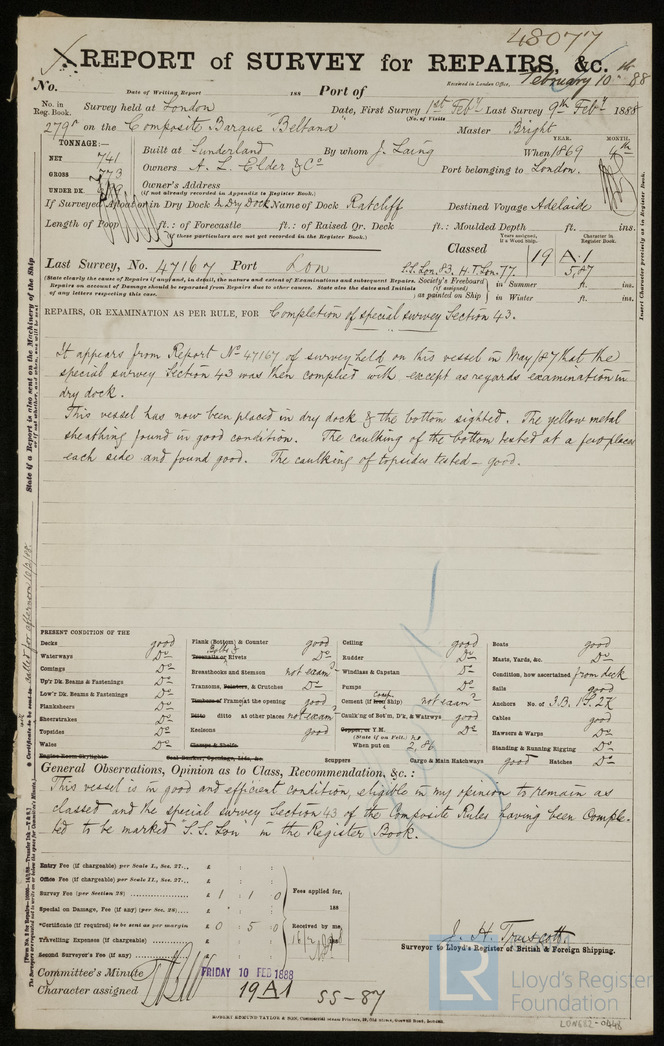 48077
REPORT of SURVEY for REPAIRS, &c.
No. Date of Writing Report 188 Port of Received in London Office, February 10th 88
No. in Reg. Book. Survey held at London Date, First Survey 1st Feby Last Survey 9th Feby 1888
(No. of Visits
279 on the Composite Barque "Beltana" Master Bright
TONNAGE:— Built at Sunderland By whom J. Laing When 1869 YEAR. MONTH. 4th
NET 741
GROSS 773 Owners A. L. Elder & Co Port belonging to London.
UNDER DK. Owner's Address
(if not already recorded in Appendix to Register Book.)
If Surveyed Afloat or in Dry Dock In Dry Dock Name of Dock Ratcliff Destined Voyage Adelaide
Length of Poop ft.: of Forecastle ft.: of Raised Qr. Deck ft.: Moulded Depth ft. ins.
(If these particulars are not yet recorded in the Register Book.)
Years assigned, if a Wood Ship. Character in Register Book.
Classed 19 A.1
5,87
Last Survey, No. 47167 Port Lon S.S. Lon. 83. H.T. Lon. 77.
(State clearly the cause of Repairs if any, and, in detail, the nature and extent of Examinations and subsequent Repairs.
Repairs on account of Damage should be separated from Repairs due to other causes. State also the dates and Initials
of any letters respecting this case.
Society's Freeboard (if assigned) as painted on Ship in Summer ft. ins.
in Winter ft. ins.
REPAIRS, OR EXAMINATION AS PER RULE, FOR Completion of special survey Section 43.
It appears from Report No 47167 of survey held on this vessel in May/87 that the
special survey Section 43 was then complied with, except as regards examination in
dry dock.
This vessel has now been placed in dry dock & the bottom sighted. The yellow metal
sheathing found in good condition. The caulking of the bottom tested at a few places
each side and found good. The caulking of topsides tested – good.
PRESENT CONDITION OF THE
Decks good
Waterways Do
Comings Do
Up'r Dk. Beams & Fastenings Do
Low'r Dk. Beams & Fastenings Do
Planksheers Do
Sheerstrakes Do
Topsides Do
Wales Do
Engine Room Skylights
Plank (Bottom) & Counter good
Bolts & Treenails or Rivets Do
Breasthooks and Stemson not exam?
Transoms, Pointers, & Crutches Do
Timbers of Frame at the opening good
Ditto ditto at other places not exam?
Keelsons good
Clamps & Shelfs
Coal Bunker, Openings, Lids, &c.
Ceiling good
Rudder Do
Windlass & Capstan Do
Pumps Do
Cement (if Iron Comp. Ship) not exam?
Caulk'ng of Bot'm, D'k, & Watrwys good
Copper, or Y.M. Do
(State if on Felt.)
When put on 2, 86
Scuppers
Cargo & Main Hatchways good
Boats good
Masts, Yards, &c. Do
Condition, how ascertained from deck
Sails good
Anchors No. of 3B. 1S. 2K
Cables good
Hawsers & Warps Do
Standing & Running Rigging Do
Hatches Do
General Observations, Opinion as to Class, Recommendation, &c.:
This vessel is in good and efficient condition, eligible in my opinion to remain as
classed and the special survey Section 43 of the Composite Rules having been comple-
ted to be marked "S.S. Lon" in the Register Book.
Entry Fee (if chargeable) per Scale I., Sec. 27... £ : :
Office Fee (if chargeable) per Scale II., Sec. 27... £ : :
Survey Fee (per Section 28) £ 1 1 0
Special on Damage, Fee (if any) (per Sec. 28)... £ : :
*Certificate (if required) to be sent as per margin £ 0 5 0
Travelling Expenses (if chargeable) £ : :
Second Surveyor's Fee (if any) £ : :
Fees applied for,
188
Received by me,
J. H. Truscott.
Surveyor to Lloyd's Register of British & Foreign Shipping.
Committee's Minute FRIDAY 10 FEB 1888
Character assigned 19 A1 SS–87
ROBERT EDMUND TAYLOR & SON, Commercial Steam Printers, 19, Old Street, Goswell Road, London.
LR
Lloyd's Register
Foundation
LON682-0448
State if a Report is also sent on the Machinery of the Ship
Insert Character precisely as in Register Book.